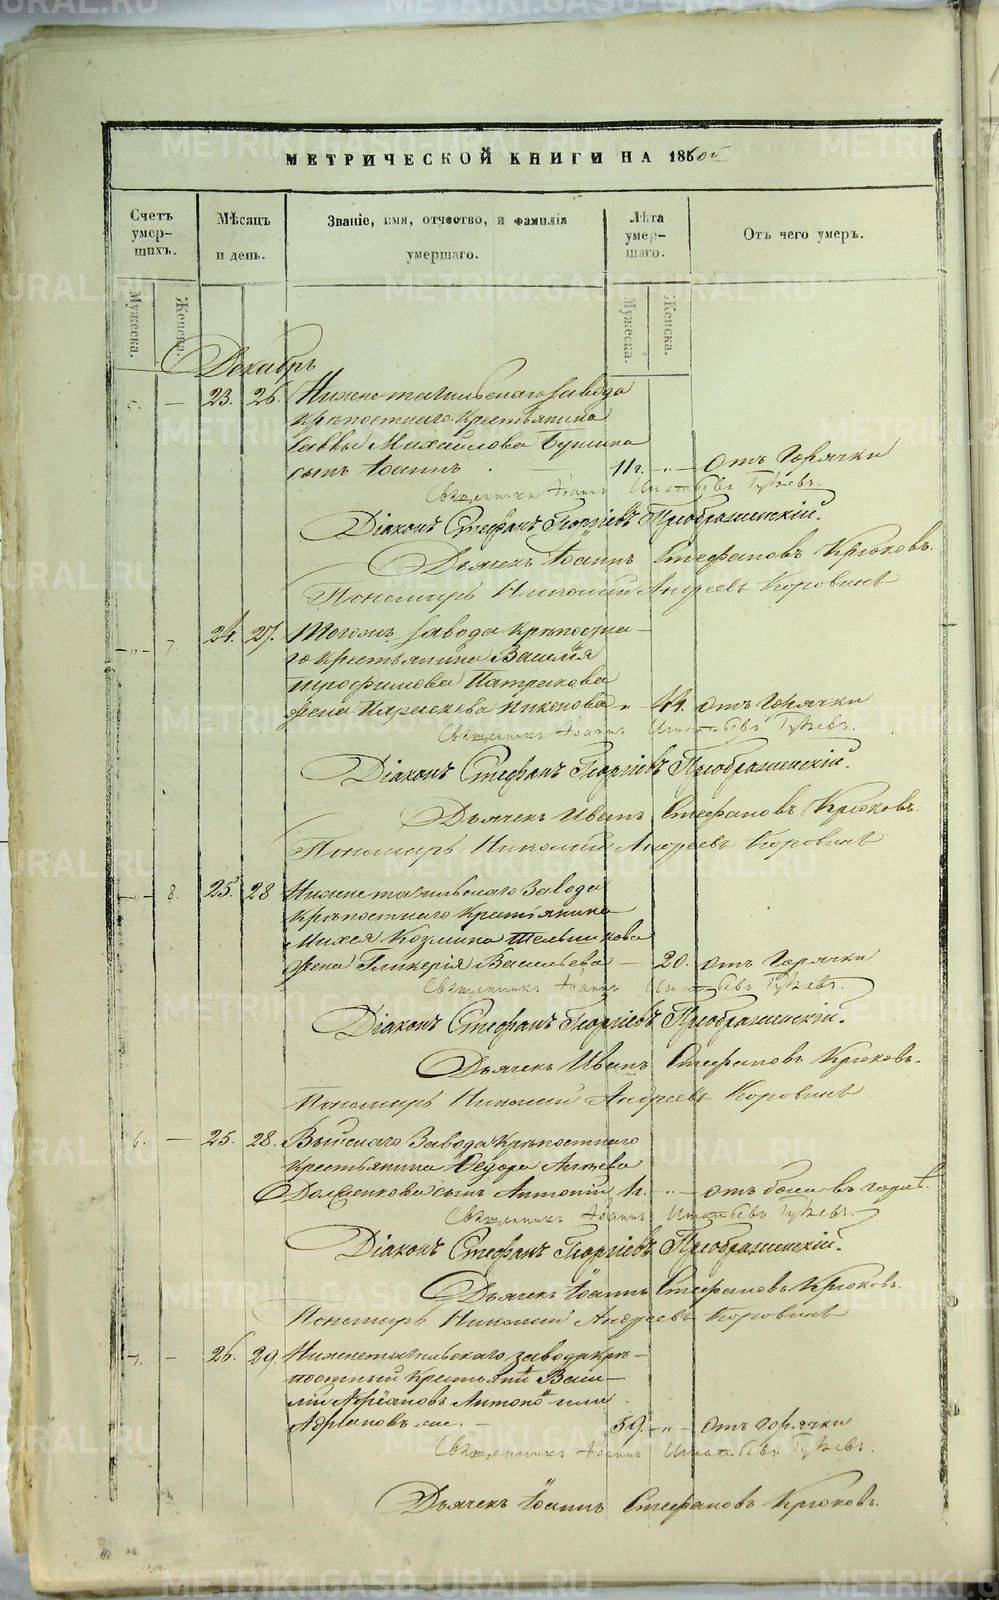 МЕТРИЧЕСКОЙ КНИГИ НА 1860й
Счетъ умер-шихъ.
Мѣсяцъ и день.
Званіе, имя, отчество, и фамилія умершаго.
Лѣта умер-шаго.
Отъ чего умеръ.
Мужеска. Женска. Мужеска. Женска.
Декабрь
5. — 23. 26. Нижнетагильскаго завода
крѣпостнаго крестьянина
Саввы Михайлова
сынъ Іоаннъ 11 г. — отъ горячки
Священникъ Іоаннъ
Діаконъ Стефанъ Георгіевъ Преображенскій.
Дьячекъ Іоаннъ Стефановъ Крюковъ.
Пономарь Николай Андреевъ Коровинъ
— 7. 24. 27. Тогожъ завода крѣпостна-
го крестьянина Василія
Трофимова Патракова
жена Параскева Никонова 44. отъ горячки
Священникъ Іоаннъ
Діаконъ Стефанъ Георгіевъ Преображенскій.
Дьячекъ Иванъ Стефановъ Крюковъ.
Пономарь Николай Андреевъ Коровинъ
— 8. 25. 28 Нижнетагильскаго Завода
крѣпостнаго крестьянина
Михея Козмина
жена Гликерія Васильева — 20. отъ горячки
Священникъ Іоаннъ
Діаконъ Стефанъ Георгіевъ Преображенскій.
Дьячекъ Иванъ Стефановъ Крюковъ.
Пономарь Николай Андреевъ Коровинъ
6. — 25. 28. Выйскаго Завода крѣпостнаго
крестьянина Ѳедора
сынъ Антоній 1 г. — отъ боли въ горлѣ.
Священникъ Іоаннъ
Діаконъ Стефанъ Георгіевъ Преображенскій.
Дьячекъ Іоаннъ Стефановъ Крюковъ.
Пономарь Николай Андреевъ Коровинъ
7. — 26. 29. Нижнетагильскаго завода крѣ-
постный крестьянинъ Васи-
лій или
59. — отъ горячки
Священникъ Іоаннъ
Дьячекъ Іоаннъ Стефановъ Крюковъ.
METRIKI.GASO-URAL.RU